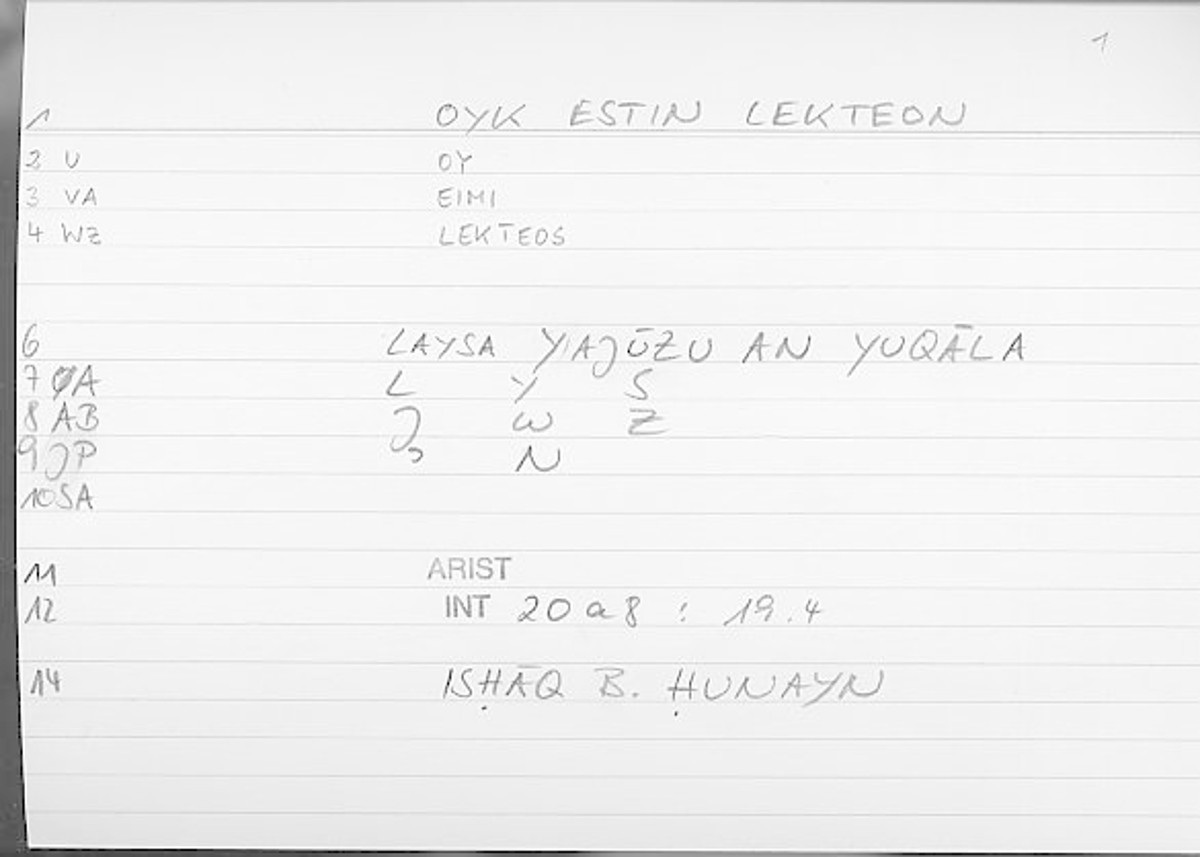 1
1 OYK ESTIN LEKTEON
2 U OY
3 VA EIMI
4 WZ LEKTEOS
6 LAYSA YAJŪZU AN YUQĀLA
7 ØA L Y S
8 AB J W Z
9 JP N
10 SA
11 ARIST
12 INT 20a8 : 19.4
14 ISḤĀQ B. ḤUNAYN